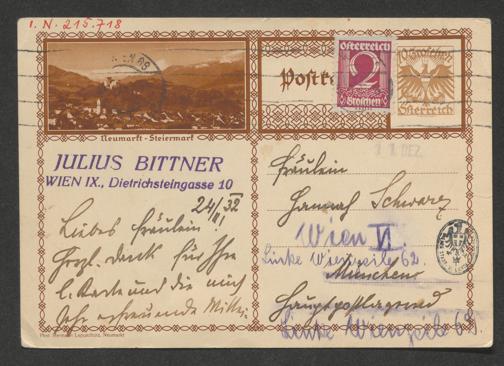 I. N. 215.718
Postk
Österreich
2
Groschen
10 Groschen
Österreich
Neumarkt - Steiermark
11. DEZ.
JULIUS BITTNER
WIEN IX., Dietrichsteingasse 10
24/II 32
Liebes Fräulein!
Herzl. Dank für Ihre
l. Karte und die mich
sehr erfreuende Mittei-
Fräulein
Hannah Schwarz
Wien VI.
Linke Wienzeile 62.
München
Hauptpostlagernd
Linke Wienzeile 62.